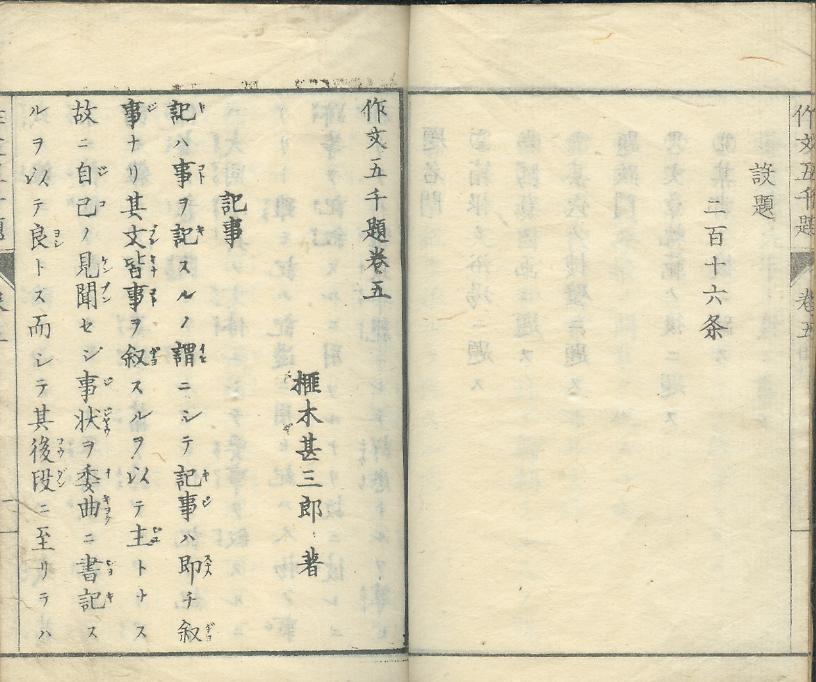 作文五千題 巻五
設題
二百十六条
作文五千題巻五
榧木甚三郎 著
記事
記ハ事ヲ記スルノ謂ニシテ記事ハ即チ叙
事ナリ其文皆事ヲ叙スルヲ以テ主トナス
故ニ自己ノ見聞セシ事状ヲ委曲ニ書記ス
ルヲ以テ良トス而シテ其後段ニ至リテハ